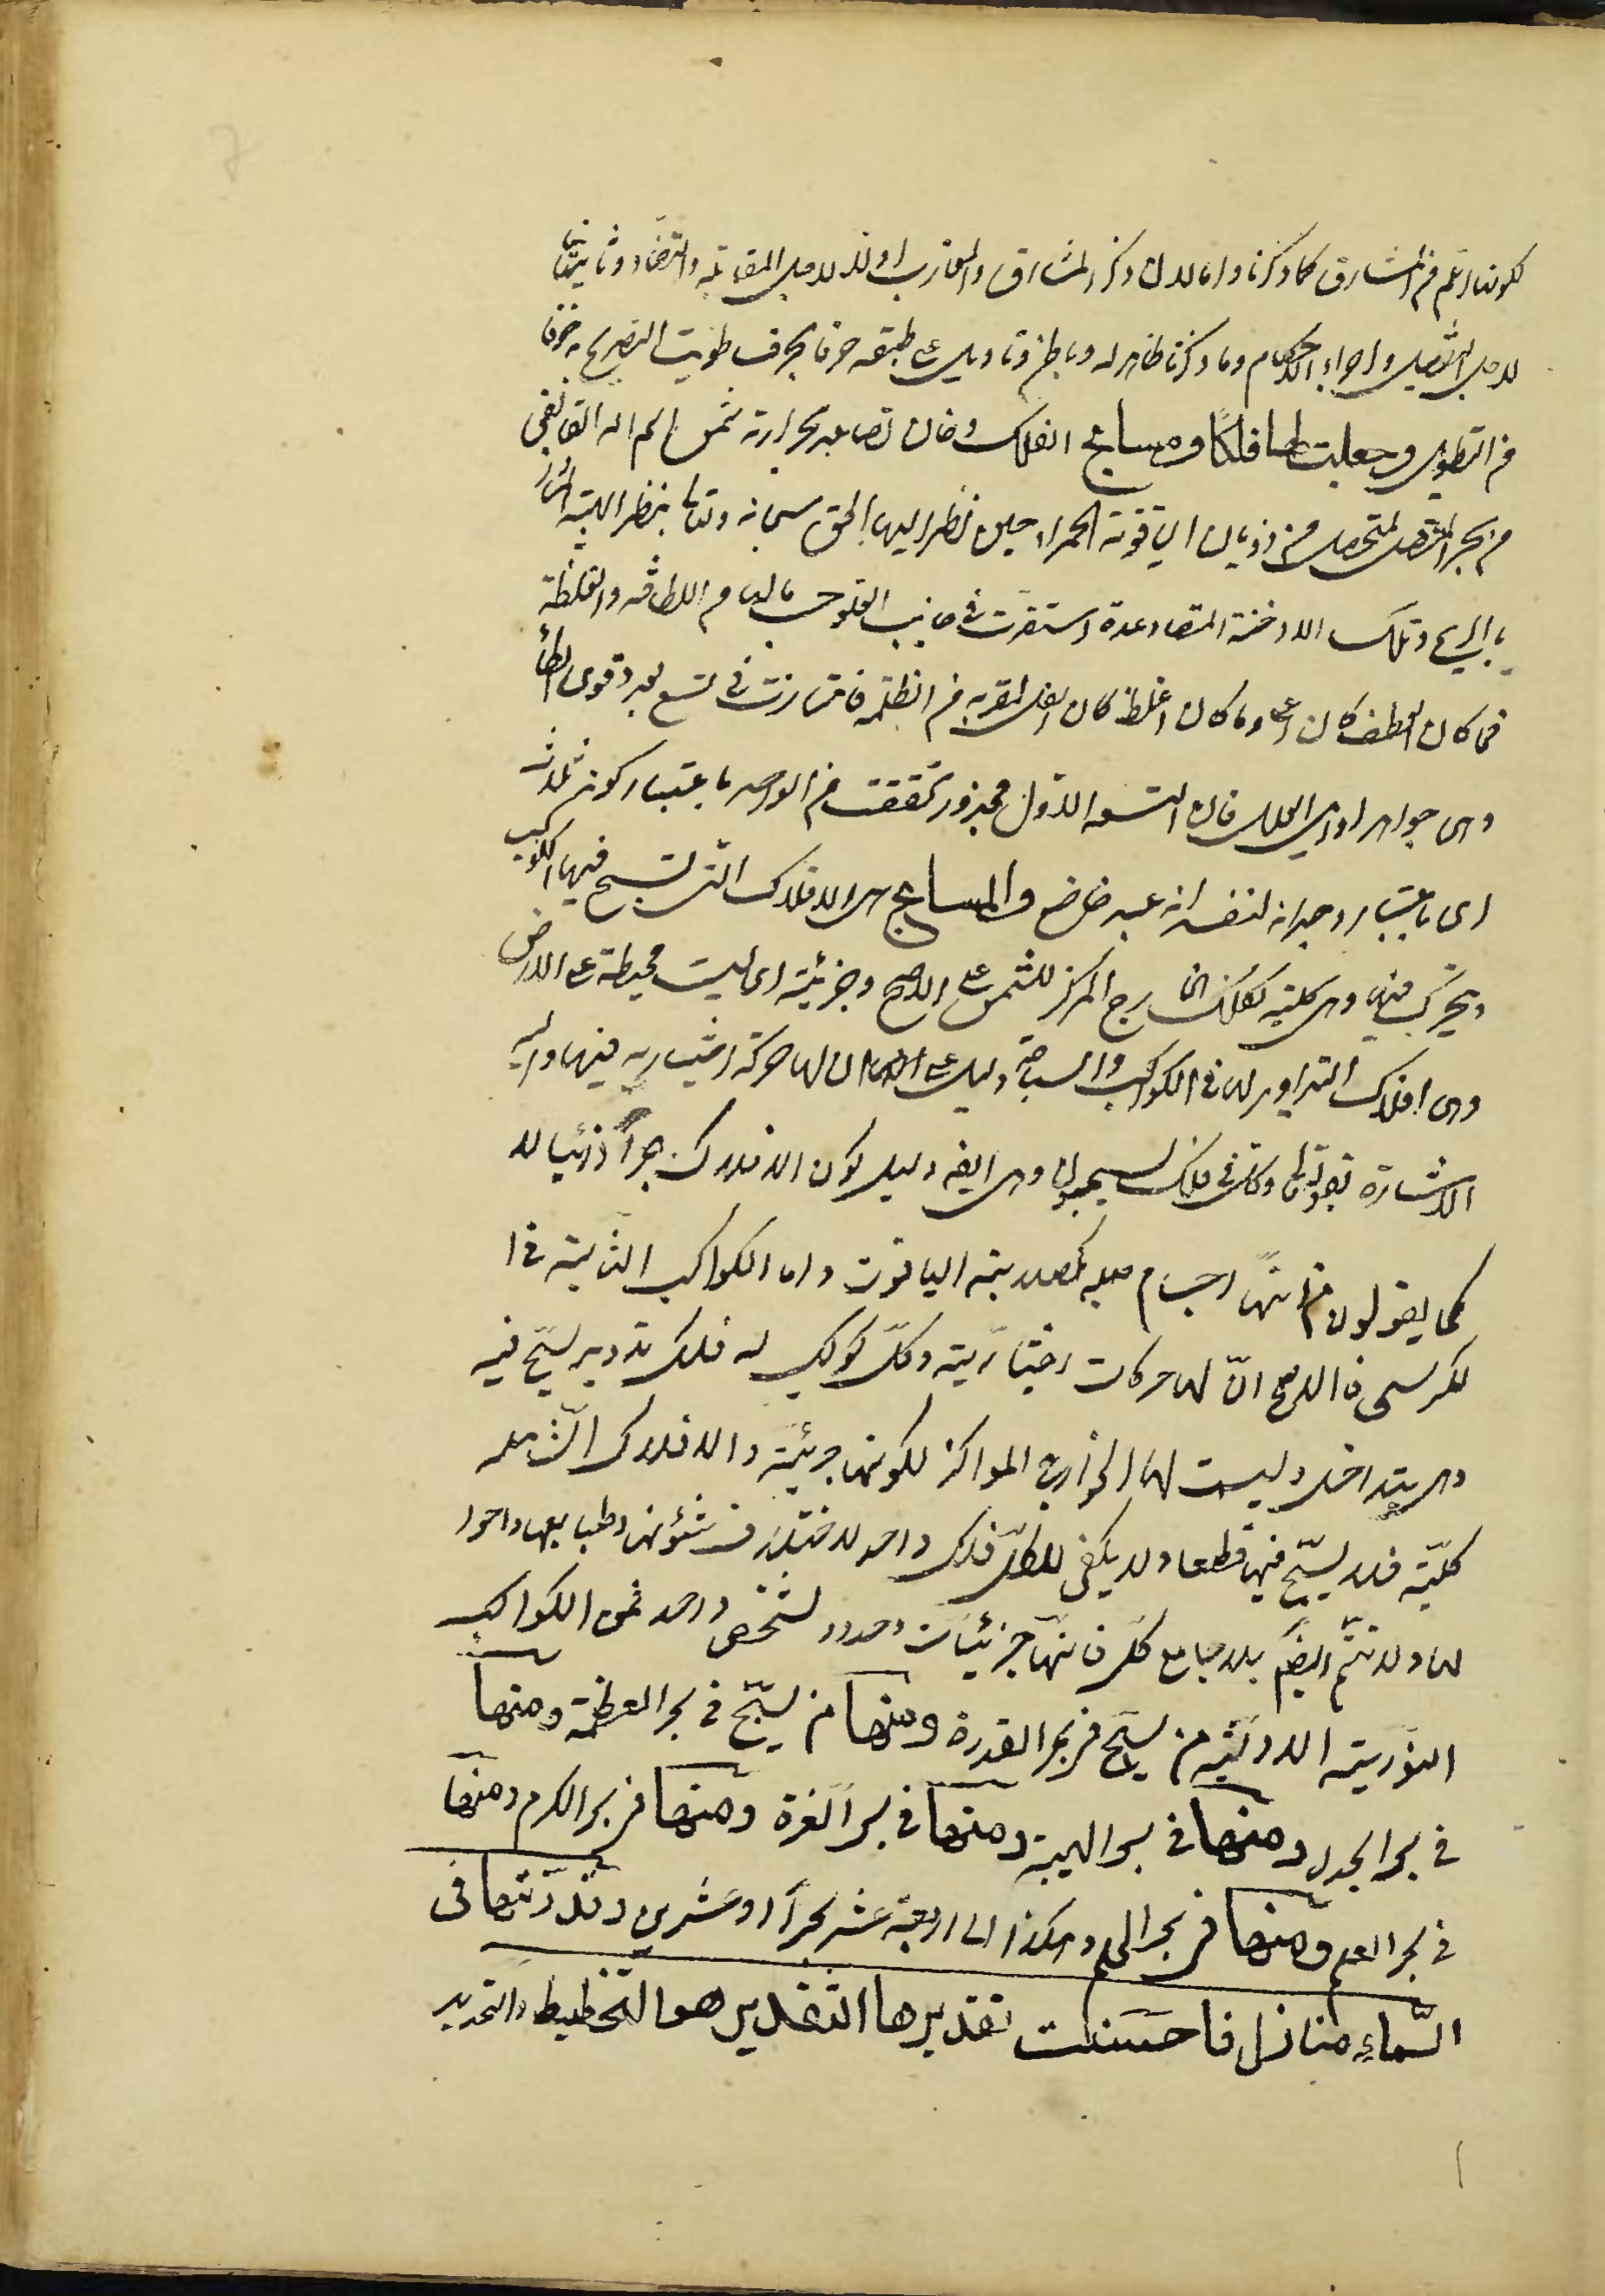 لكونها اعم من المشارق كما ذكرنا واما لان ذكر المشارق والمغارب اولا لاجل المقابلة والتضاد وثانيتها
لاجل التفصيل واجراء الاحكام وما ذكرنا ظاهر له وباطن وتاويل على طبقه حرفا بحرف طويت التصريح به خوفا
من التطويل وجعلت لها فلكا ومسابح الفلك دخان تصاعد بحرارة شمس اسم الله القابض
من بحر المتحصل من ذوبان الياقوتة الحمراء حين نظر اليها الحق سبحانه وتعالى بنظر الهيبة
وتلك الادخنة المتصاعدة استقرت في جانب العلو حسب مالها من اللطافة والغلظة
فما كان الطف كان اعلى وما كان اغلظ كان اسفل لقربه من الظلمة فتمايزت في تسع
وهي جواهر اوائل العلل فان التسعه الاول مجذور تحققت من الواحد باعتبار كونه ثلاث
اى باعتبار وجدانه لنفسه انه عبد خاضع والمسابح هي الافلاك التي تسبح فيها الكواكب
ويتحرك فيها وهى كلية كفلك الخارج المركز للشمس على الاصح وجزئية اى ليست محيطة على الارض
وهى افلاك التداوير لها في الكواكب والسباحة دليل على ان لها حركة اختيارية فيها واليه
الاشارة بقوله تعالى وكل في فلك يسبحون وهى ايضا دليل كون الافلاك جرما ذائبا لا
كما يقولون من انها اجسام صلبه كصلابة الياقوت واما الكواكب الثابتة في ا
لكرسى فالاصح ان لها حركات اختيارية وكل كوكب له فلك تدوير يسبح فيه
وهى يتداخل وليست لها الخوارج المراكز لكونها جزئية والافلاك الشاملة
كلية فلا يسبح فيها قطعا ولا يكفى للكل فلك واحد لاختلاف شئونها وطبايعها واحوا
لها ولا تتم ايضا بلا جامع كلى فانها جزئيات وحدود لشخص واحد فمن الكواكب
النورية اللاوئية من يسبح في بحر القدرة ومنها من يسبح في بحر العظمة ومنها
في بحر الجلال ومنها في بحر الهيبة ومنها في بحر العزة ومنها في بحر الكرم ومنها
في بحر العلم ومنها في بحر الحلم وهكذا الى اربعة عشر بحرا او عشرين وقدرتها في
السماء منازل فاحسنت تقديرها التقدير هو التخطيط والتحديد